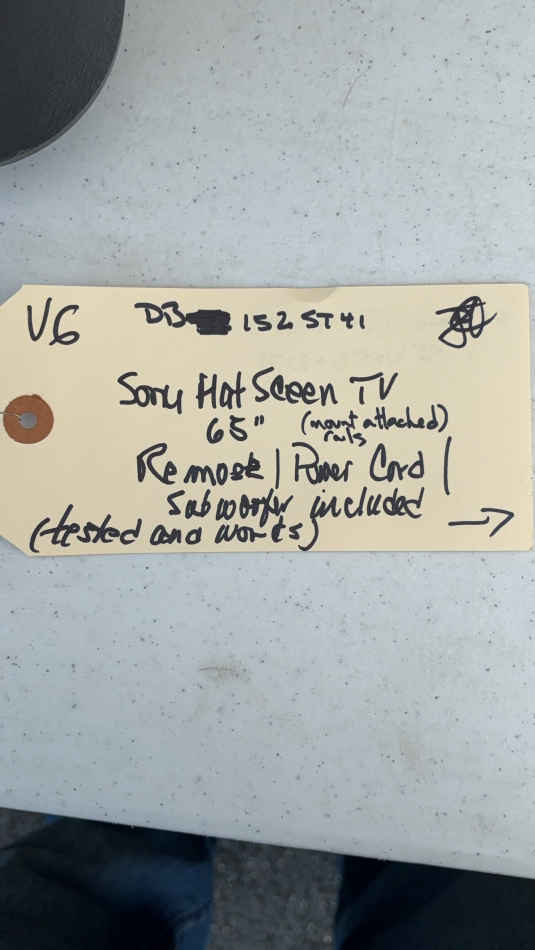 V6 DB 152 ST41
Sony Flat Sceen TV
65" (mount attached)
rails
Remote | Power Cord |
Subwoofer included
(tested and works) →